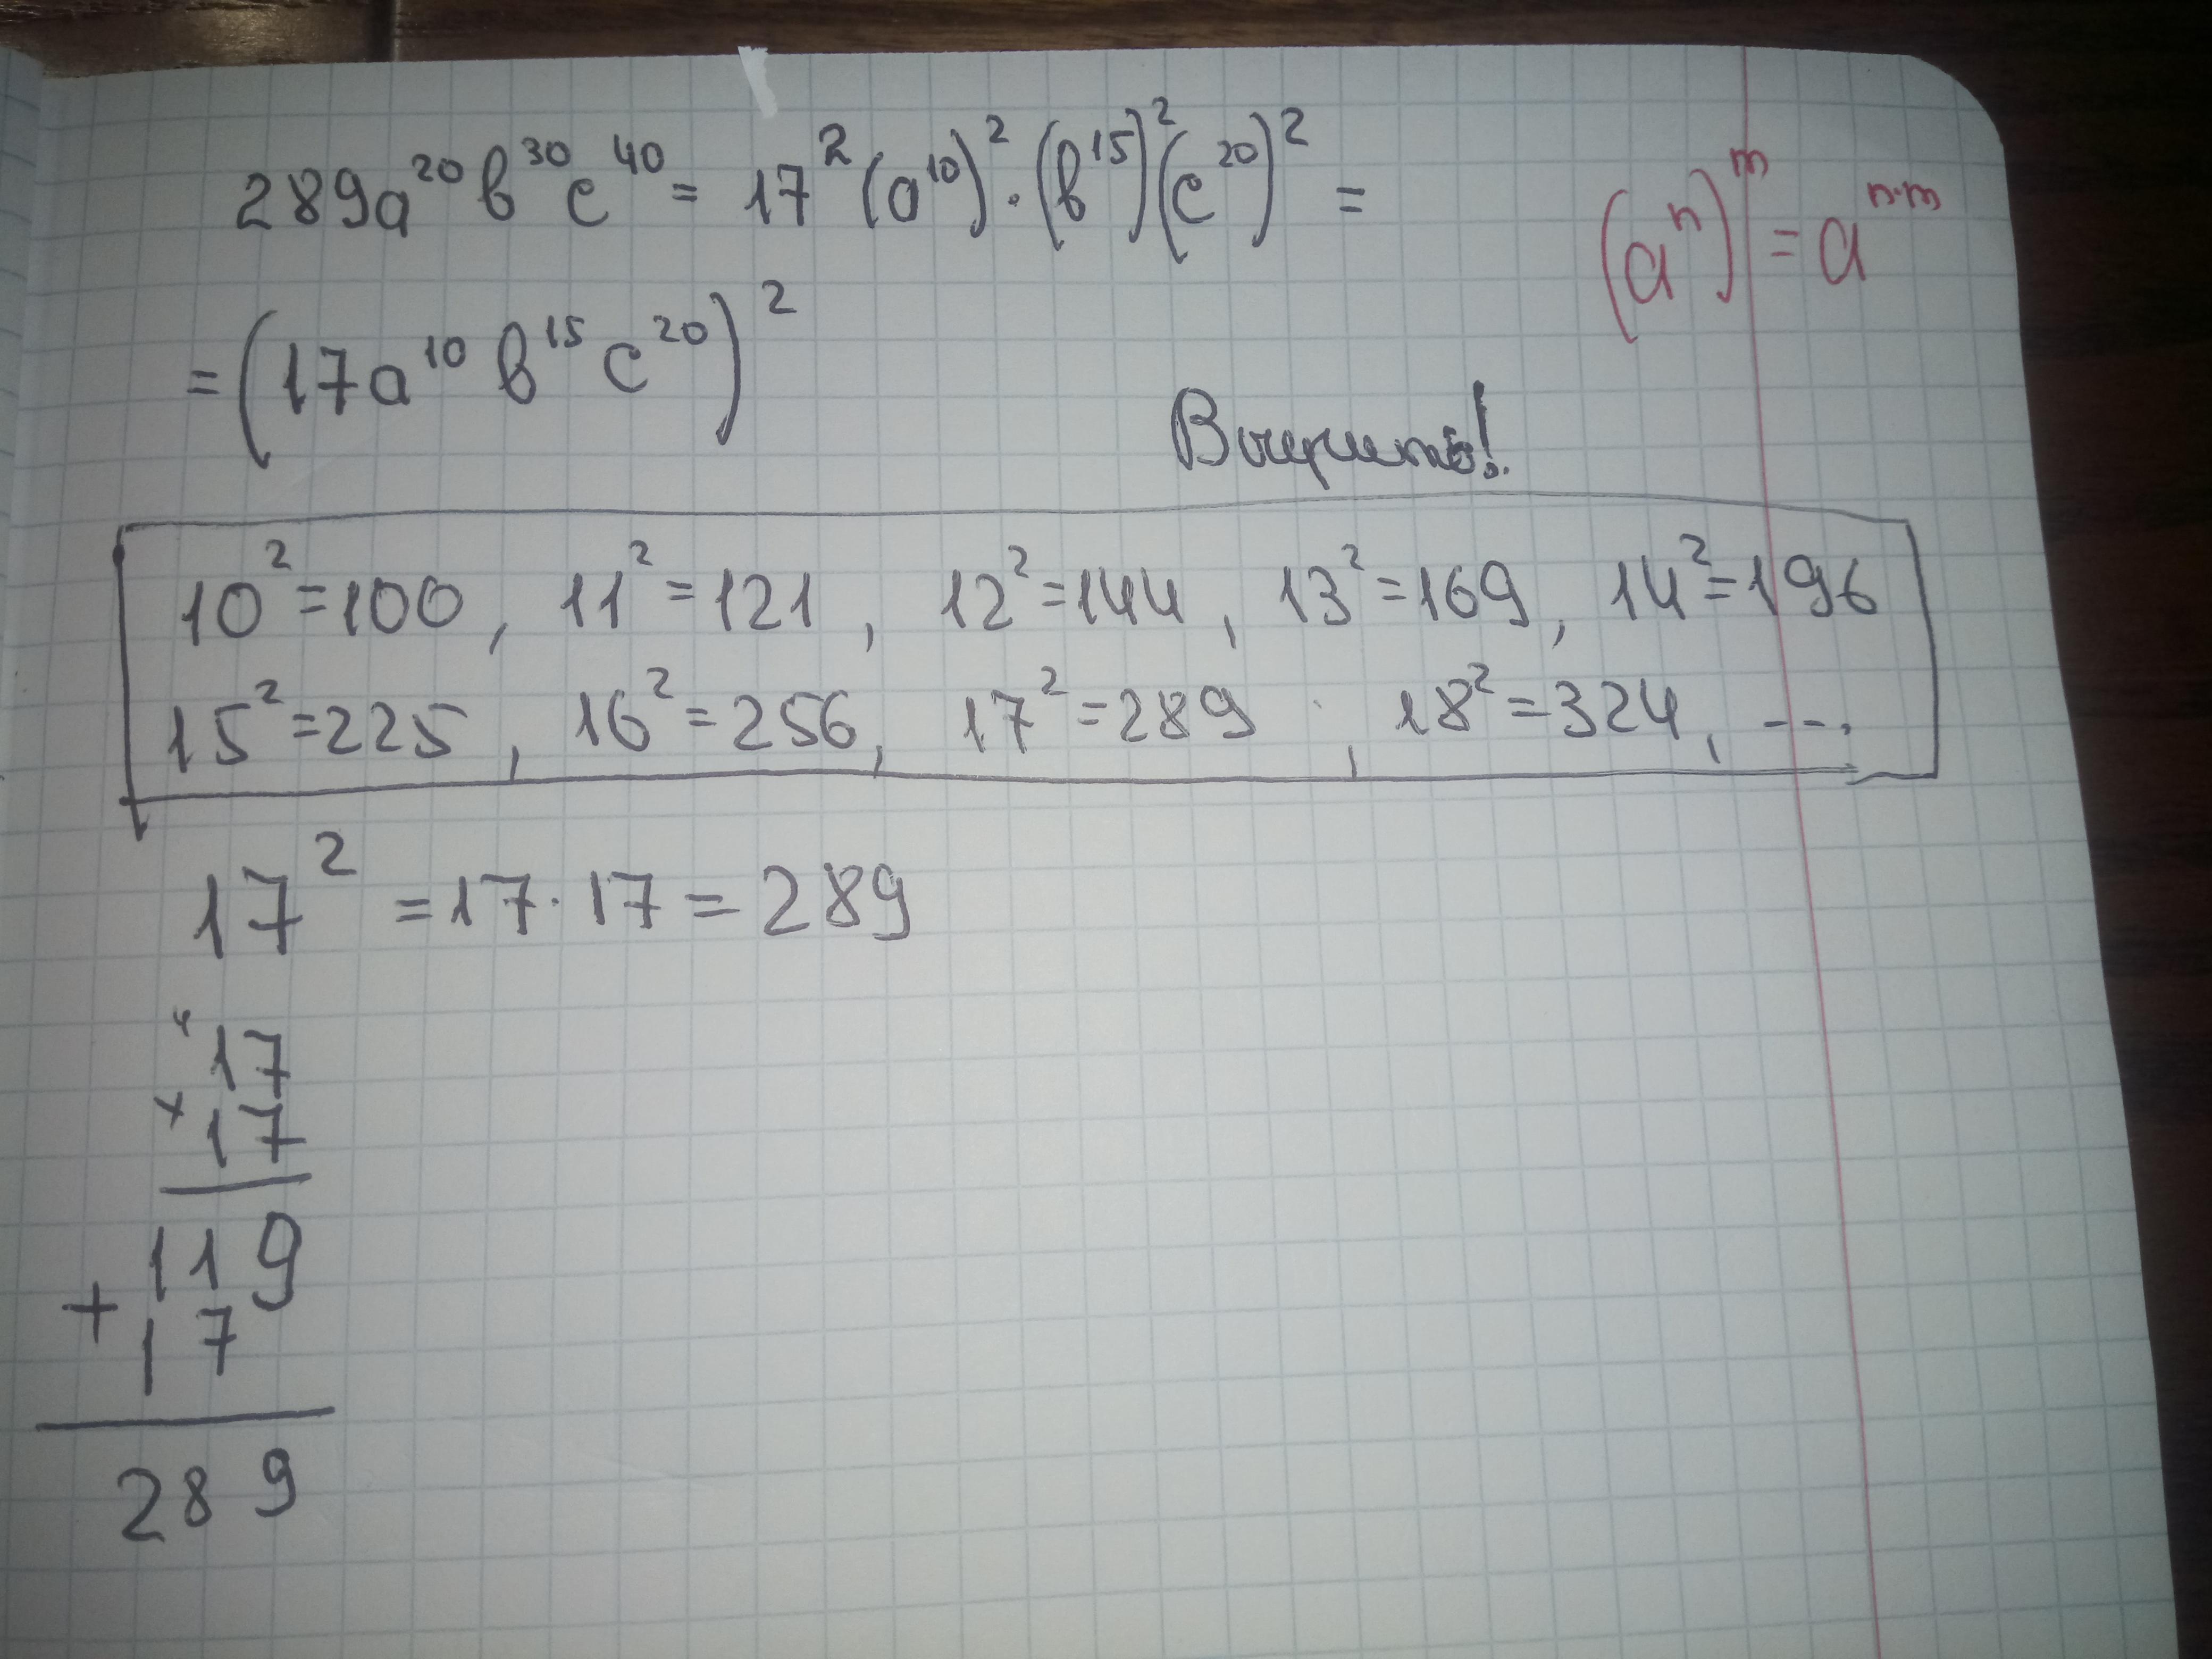 289a²⁰b³⁰c⁴⁰ = 17²(a¹⁰)²·(b¹⁵)²(c²⁰)² =
(aⁿ)ᵐ = aⁿ·ᵐ
= (17a¹⁰b¹⁵c²⁰)²
Выучить!
10²=100, 11²=121, 12²=144, 13²=169, 14²=196
15²=225, 16²=256, 17²=289, 18²=324, ...
17² = 17·17 = 289
17
× 17
119
+ 17
289